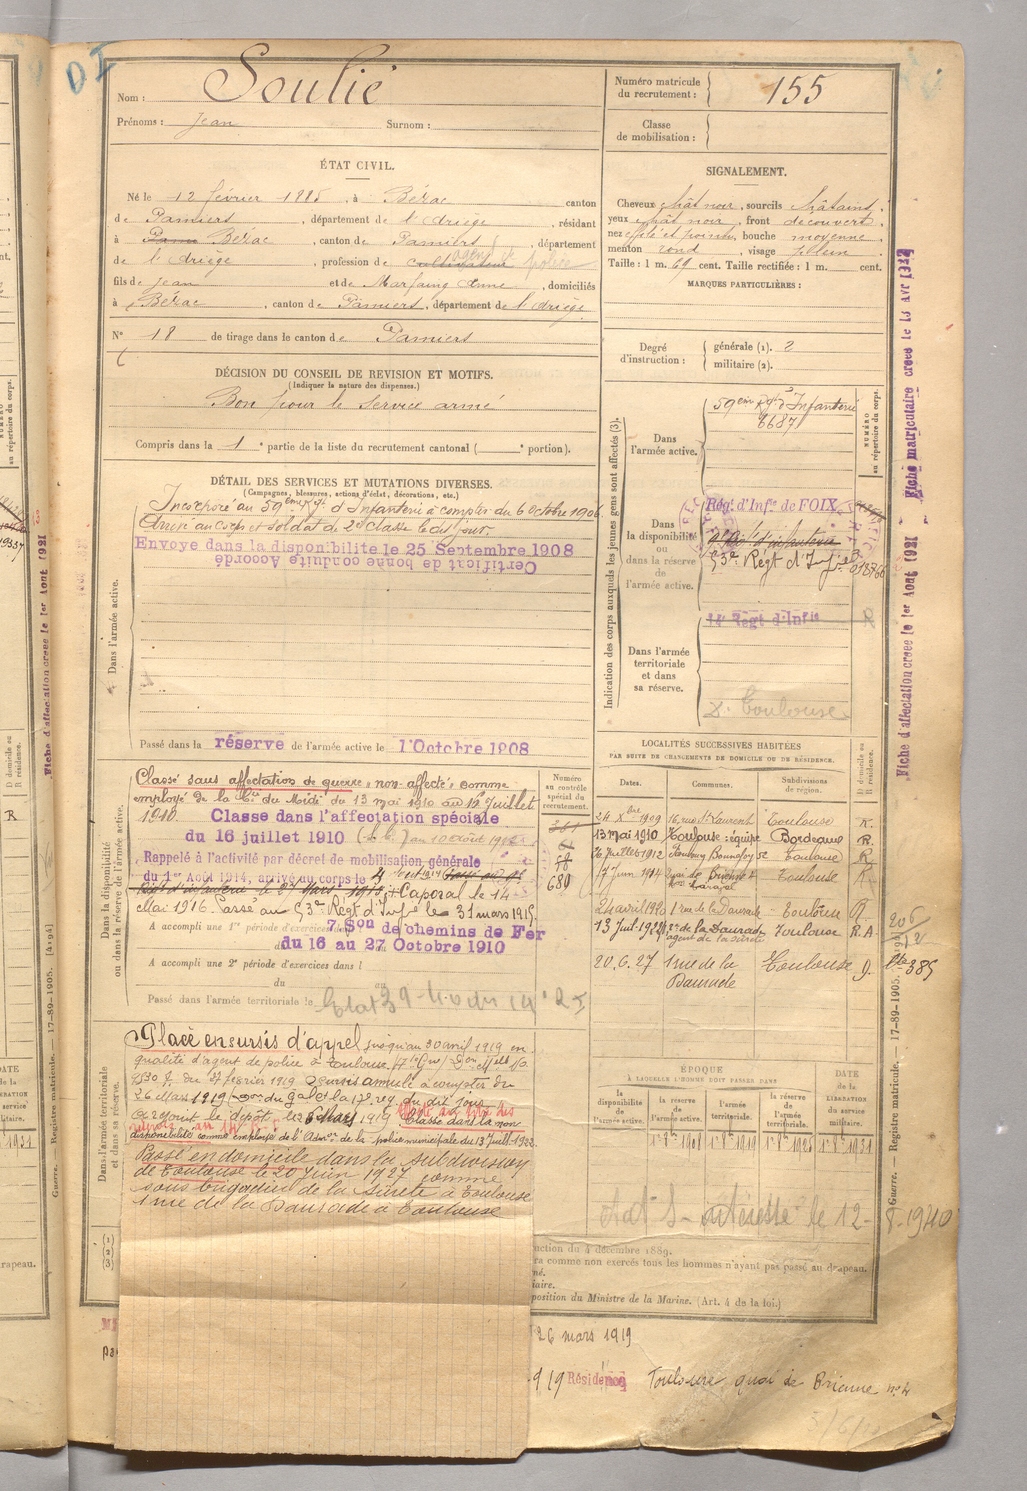 Nom : Soulié
Prénoms : Jean Surnom :
Numéro matricule du recrutement : 155
Classe de mobilisation :
ÉTAT CIVIL.
Né le 12 février 1885, à Bézac canton
de Pamiers, département de l'Ariège, résidant
à Bézac, canton de Pamiers, département
de l'Ariège, profession de cultivateur agent de police
fils de Jean et de Marfaing Anne, domiciliés
à Bézac, canton de Pamiers, département de l'Ariège
N° 18 de tirage dans le canton de Pamiers
SIGNALEMENT.
Cheveux chât noir, sourcils châtains,
yeux chât noir, front découvert,
nez effilé et pointu, bouche moyenne,
menton rond, visage plein.
Taille : 1 m. 69 cent. Taille rectifiée : 1 m. cent.
MARQUES PARTICULIÈRES :
Degré d'instruction : générale (1). 2
militaire (2).
DÉCISION DU CONSEIL DE REVISION ET MOTIFS.
(Indiquer la nature des dispenses.)
Bon pour le service armé
Compris dans la 1e partie de la liste du recrutement cantonal ( e portion).
DÉTAIL DES SERVICES ET MUTATIONS DIVERSES.
(Campagnes, blessures, actions d'éclat, décorations, etc.)
Dans l'armée active.
Incorporé au 59ème Rgt d'Infanterie à compter du 6 octobre 1906
Arrivé au corps et soldat de 2e classe le dit jour.
Envoyé dans la disponibilité le 25 Septembre 1908
Certificat de bonne conduite Accordé
Passé dans la réserve de l'armée active le 1 Octobre 1908
Indication des corps auxquels les jeunes gens sont affectés (3).
NUMÉRO au répertoire du corps.
Dans l'armée active.
59ème Rgt d'Infanterie
6687
Dans la disponibilité ou dans la réserve de l'armée active.
Rég. d'Infie de FOIX
53e Régt d'Infie
Dans l'armée territoriale et dans sa réserve.
14e Régt d'Infie
Toulouse
Dans la disponibilité ou dans la réserve de l'armée active.
Classé sans affectation de guerre "non affecté" comme
employé de la Cie du Midi du 13 mai 1910 au 16 Juillet
1910.
Classé dans l'affectation spéciale
du 16 juillet 1910
Rappelé à l'activité par décret de mobilisation générale
du 1er Août 1914, arrivé au corps le 4
Caporal le 14
Mai 1916. Passé au 53e Régt d'Infie le 31 mars 1915.
A accompli une 1re période d'exercices dans 7e Son de chemins de Fer
du 16 au 27 Octobre 1910
A accompli une 2e période d'exercices dans l
du au
Passé dans l'armée territoriale le
Numéro au contrôle spécial du recrutement.
361
58
680
LOCALITÉS SUCCESSIVES HABITÉES
PAR SUITE DE CHANGEMENTS DE DOMICILE OU DE RÉSIDENCE.
Dates. Communes. Subdivisions de région. D domicile ou R résidence.
24 Xbre 1909 16, rue St Laurent Toulouse R.
13 mai 1910 Toulouse : équipe Bordeaux R.
26 Juillet 1912 Faubourg Bonnefoy 52 Toulouse R
17 Juin 1914 Quai de Brienne 2 Toulouse R
24 avril 1920 1 rue de la Daurade Toulouse R.
de la Daurade Toulouse R.A.
agent de la sûreté
20.6.27 1 rue de la Daurade Toulouse D.
Dans l'armée territoriale et dans sa réserve.
Placé en sursis d'appel jusqu'au 30 avril 1919 en
qualité d'agent de police à Toulouse
du 27 février 1919 Sursis annulé à compter du
26 Mars 1919
mars 1919 Classé dans la non
disponibilité comme employé de l'Admon de la police municipale du 13 Juill. 1922
Passé en domicile dans la subdivision
de Toulouse le 20 Juin 1927 comme
sous brigadier de la sûreté à Toulouse
1 rue de la Daurade à Toulouse
ÉPOQUE
À LAQUELLE L'HOMME DOIT PASSER DANS
la disponibilité de l'armée active. la réserve de l'armée active. l'armée territoriale. la réserve de l'armée territoriale. DATE de la LIBÉRATION du service militaire.
8-1940
uction du 4 décembre 1889.
ra comme non exercés tous les hommes n'ayant pas passé au drapeau.
position du Ministre de la Marine. (Art. 4 de la loi.)
26 mars 1919
919 Résidence Toulouse quai de Brienne n° 2
Fiche matriculaire créée le 15 Avr 1942
Fiche d'affectation créée le 1er Août 1921
Guerre. — Registre matricule. — 17-89-1905.